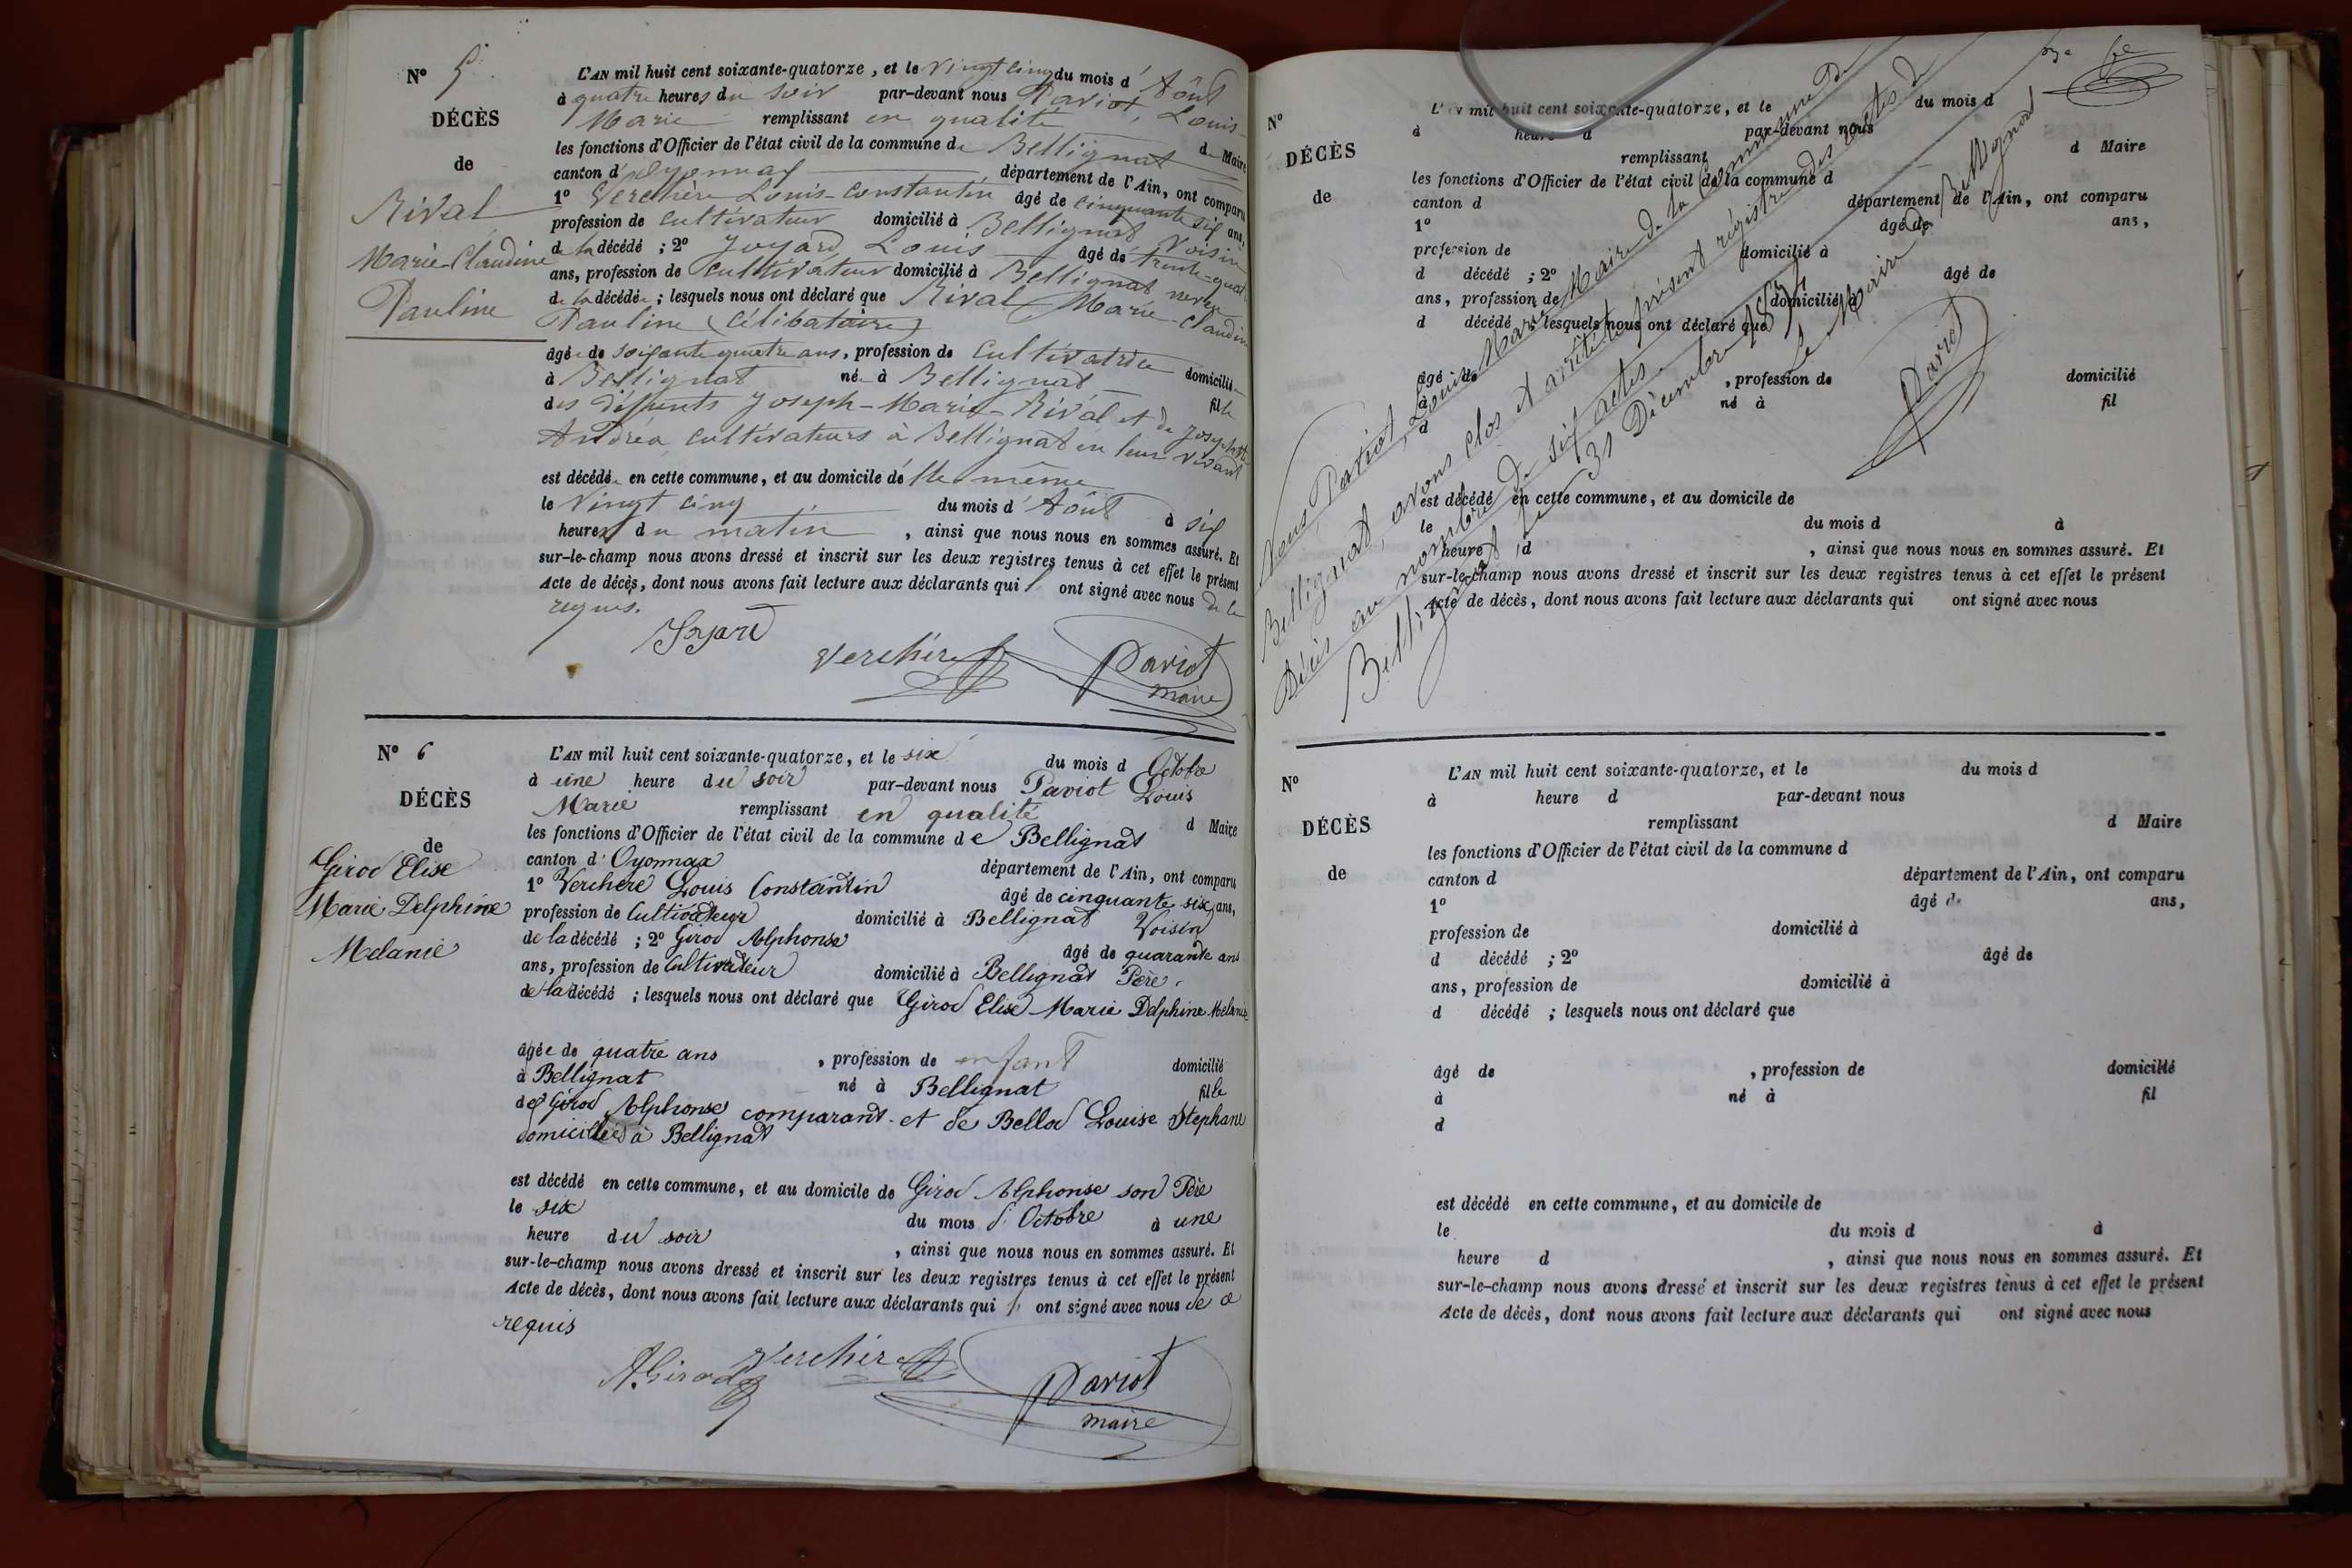 N° 5
DÉCÈS
de
Rival
Marie-Claudine
Pauline
L'AN mil huit cent soixante-quatorze, et le Vingt cinq du mois d'Août
à quatre heures du soir par-devant nous Paviot, Louis-
Marie remplissant en qualité de Maire
les fonctions d'Officier de l'état civil de la commune de Bellignat
canton d'Oyonnax département de l'Ain, ont comparu
1° Verchère Louis-Constantin âgé de cinquante six ans,
profession de cultivateur domicilié à Bellignat Voisin
de la décédé ; 2° Joyard Louis âgé de trente-quatre
ans, profession de cultivateur domicilié à Bellignat neveu
de la décédée ; lesquels nous ont déclaré que Rival Marie-Claudine
Pauline (célibataire)
âgée de soixante quatre ans, profession de Cultivatrice domiciliée
à Bellignat née à Bellignat fille
des défunts Joseph-Marie-Rival et de Josephte
Andréa cultivateurs à Bellignat en leur vivant
est décédée en cette commune, et au domicile d'elle même
le Vingt cinq du mois d'Août à six
heures du matin, ainsi que nous nous en sommes assuré. Et
sur-le-champ nous avons dressé et inscrit sur les deux registres tenus à cet effet le présent
Acte de décès, dont nous avons fait lecture aux déclarants qui l' ont signé avec nous de ce
requis.
Joyard
Verchère
Paviot
maire
N° 6
DÉCÈS
de
Girod Elise
Marie Delphine
Melanie
L'AN mil huit cent soixante-quatorze, et le six du mois d Octobre
à une heure du soir par-devant nous Paviot Louis
Marie remplissant en qualité d Maire
les fonctions d'Officier de l'état civil de la commune de Bellignat
canton d'Oyonnax département de l'Ain, ont comparu
1° Verchere Louis Constantin âgé de cinquante six ans,
profession de Cultivateur domicilié à Bellignat Voisin
de la décédé ; 2° Girod Alphonse âgé de quarante ans
ans, profession de Cultivateur domicilié à Bellignat Père
de la décédé ; lesquels nous ont déclaré que Girod Elise Marie Delphine Melanie
âgée de quatre ans, profession de enfant domicilié
à Bellignat né à Bellignat fille
de Girod Alphonse comparant et de Bellod Louise Stephanie
domiciliés à Bellignat
est décédé en cette commune, et au domicile de Girod Alphonse son Père
le six du mois d'Octobre à une
heure du soir, ainsi que nous nous en sommes assuré. Et
sur-le-champ nous avons dressé et inscrit sur les deux registres tenus à cet effet le présent
Acte de décès, dont nous avons fait lecture aux déclarants qui l' ont signé avec nous de ce
requis
A. Girod
Verchère
Paviot
maire
N°
DÉCÈS
de
L'AN mil huit cent soixante-quatorze, et le du mois d
à heure d par-devant nous
remplissant d Maire
les fonctions d'Officier de l'état civil de la commune d
canton d département de l'Ain, ont comparu
1° âgé de ans,
profession de domicilié à
d décédé ; 2° âgé de
ans, profession de domicilié à
d décédé ; lesquels nous ont déclaré que
âgé de , profession de domicilié
à né à fil
d
est décédé en cette commune, et au domicile de
le du mois d à
heure d , ainsi que nous nous en sommes assuré. Et
sur-le-champ nous avons dressé et inscrit sur les deux registres tenus à cet effet le présent
Acte de décès, dont nous avons fait lecture aux déclarants qui ont signé avec nous
Nous, Paviot, Louis Marie Maire de la Commune de
Bellignat, avons clos et arrêté le présent régistre des actes de
Décès au nombre de six actes.
Bellignat le 31 Décembre 1874
Le Maire de Bellignat
Paviot
N°
DÉCÈS
de
L'AN mil huit cent soixante-quatorze, et le du mois d
à heure d par-devant nous
remplissant d Maire
les fonctions d'Officier de l'état civil de la commune d
canton d département de l'Ain, ont comparu
1° âgé de ans,
profession de domicilié à
d décédé ; 2° âgé de
ans, profession de domicilié à
d décédé ; lesquels nous ont déclaré que
âgé de , profession de domicilié
à né à fil
d
est décédé en cette commune, et au domicile de
le du mois d à
heure d , ainsi que nous nous en sommes assuré. Et
sur-le-champ nous avons dressé et inscrit sur les deux registres tenus à cet effet le présent
Acte de décès, dont nous avons fait lecture aux déclarants qui ont signé avec nous